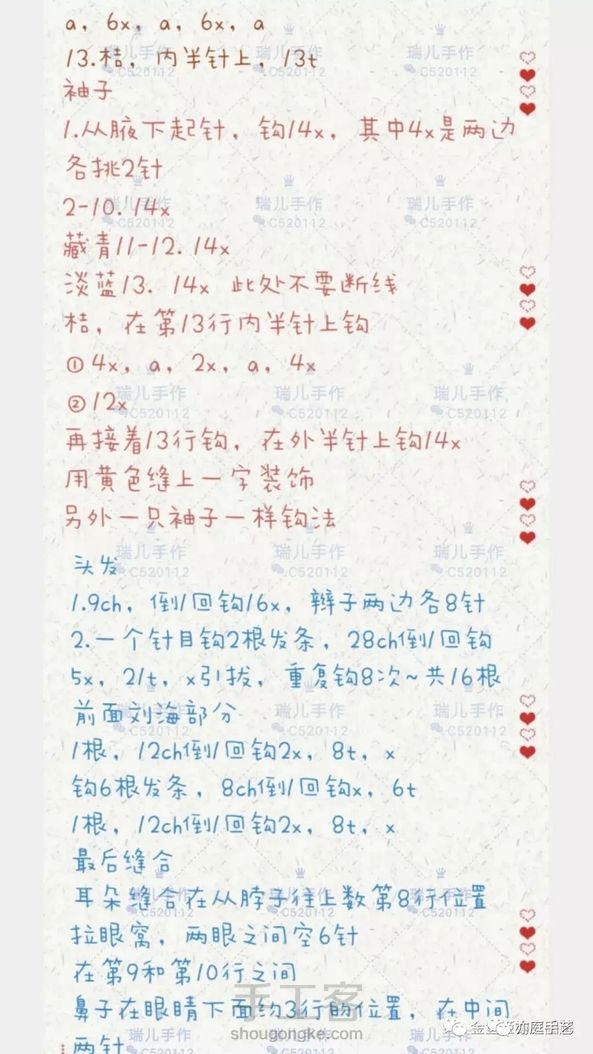 a, 6x, a, 6x, a
13.桔, 内半针上, 13t
袖子
1.从腋下起针, 钩14x, 其中4x是两边
各挑2针
2-10. 14x
藏青11-12. 14x
淡蓝13. 14x 此处不要断线
桔, 在第13行内半针上钩
① 4x, a, 2x, a, 4x
② 12x
再接着13行钩, 在外半针上钩14x
用黄色缝上一字装饰
另外一只袖子一样钩法
头发
1.9ch, 倒1回钩16x, 辫子两边各8针
2.一个针目钩2根发条, 28ch倒1回钩
5x, 21t, x引拔, 重复钩8次~共16根
前面刘海部分
1根, 12ch倒1回钩2x, 8t, x
钩6根发条, 8ch倒1回钩x, 6t
1根, 12ch倒1回钩2x, 8t, x
最后缝合
耳朵缝合在从脖子往上数第8行位置
拉眼窝, 两眼之间空6针
在第9和第10行之间
鼻子在眼睛下面约3行的位置, 在中间
两针
瑞儿手作
C520112
手工客
shougongke.com